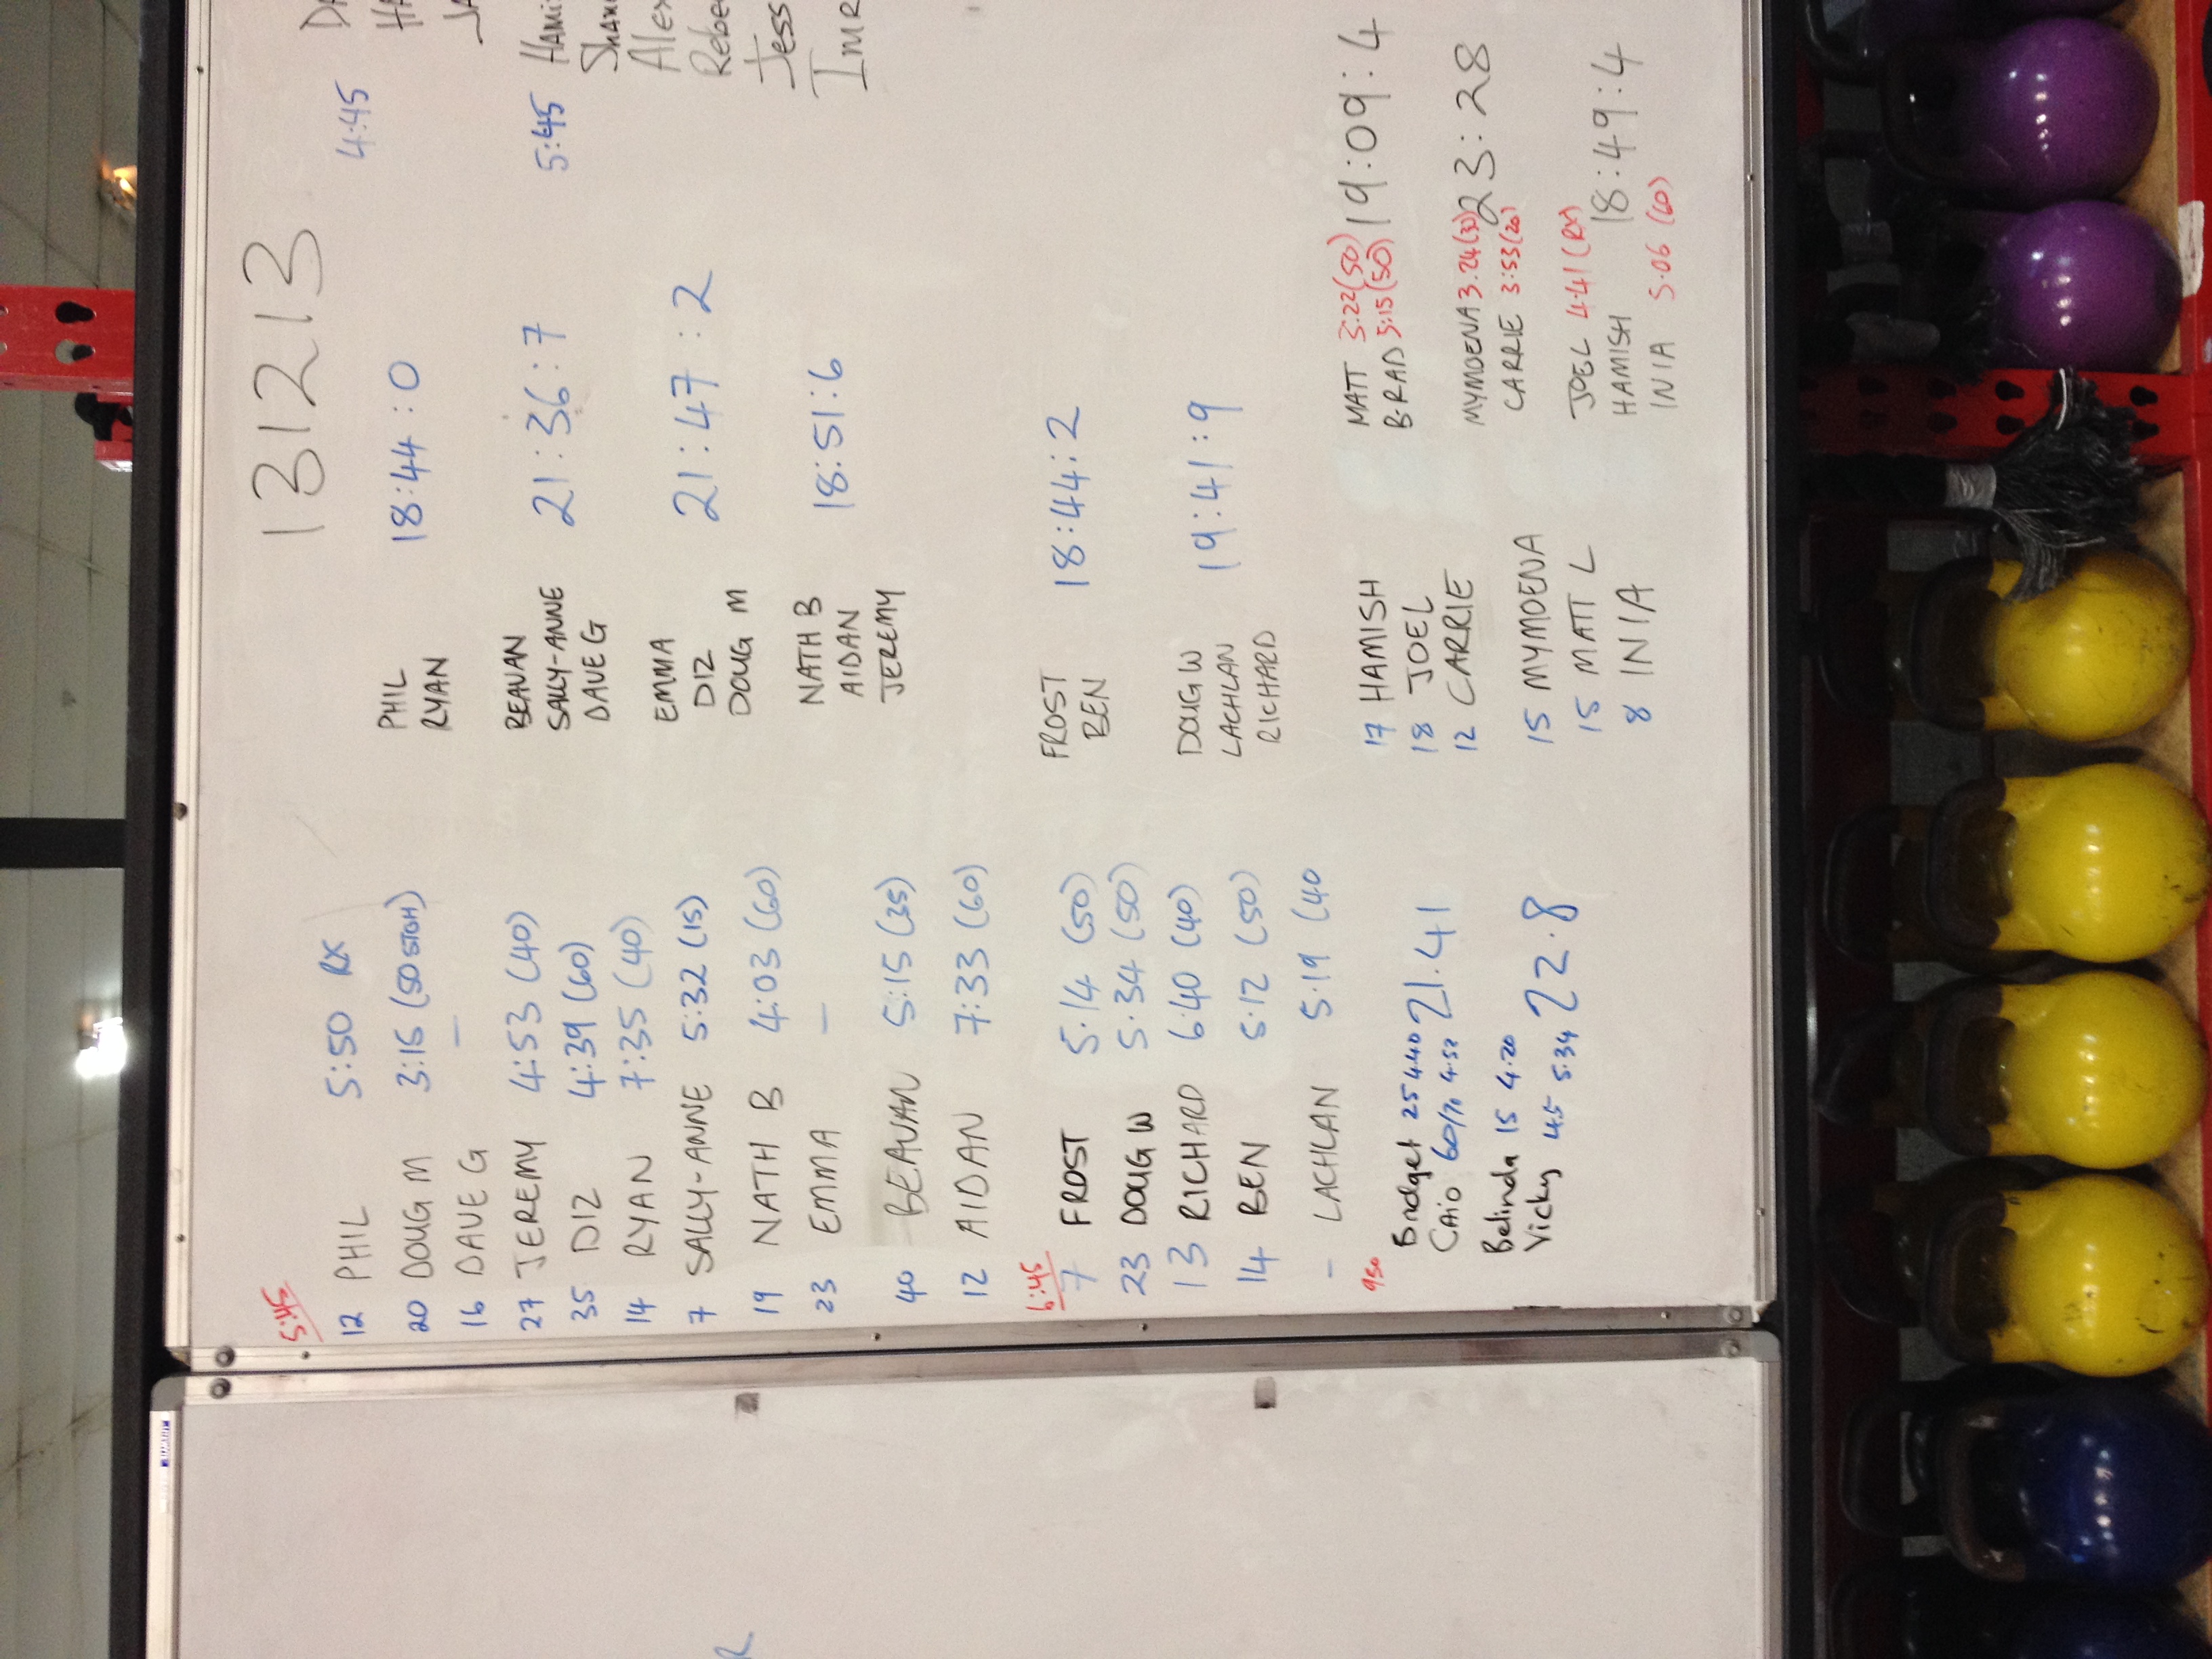 131213
5:45
12 PHIL 5:50 RX
20 DOUG M 3:15 (50 STOH)
16 DAVE G –
27 JEREMY 4:53 (40)
35 DIZ 4:39 (60)
14 RYAN 7:35 (40)
7 SALLY-ANNE 5:32 (15)
19 NATH B 4:03 (60)
23 EMMA –
40 BEAVAN 5:15 (35)
12 AIDAN 7:33 (60)
6:45
7 FROST 5:14 (50)
23 DOUG W 5:34 (50)
13 RICHARD 6:40 (40)
14 BEN 5:12 (50)
– LACHLAN 5:19 (40
930
Bridget 25 4.40
Caio 60/70 4.52
21.41
Belinda 15 4.20
Vicky 45 5:34
22.8
PHIL
RYAN
18:44:0
BEAVAN
SALLY-ANNE
DAVE G
21:36:7
EMMA
DIZ
DOUG M
21:47:2
NATH B
AIDAN
JEREMY
18:51:6
FROST
BEN
18:44:2
DOUG W
LACHLAN
RICHARD
19:41:9
17 HAMISH
18 JOEL
12 CARRIE
15 MYMOENA
15 MATT L
8 INIA
MATT 5:22 (50)
B-RAD 5:15 (50)
19:09:4
MYMOENA 3.24
CARRIE 3:53 (20)
23:28
JOEL 4.41 (RX)
HAMISH
INIA 5.06 (60)
18:49:4
4:45
5:45
Jess